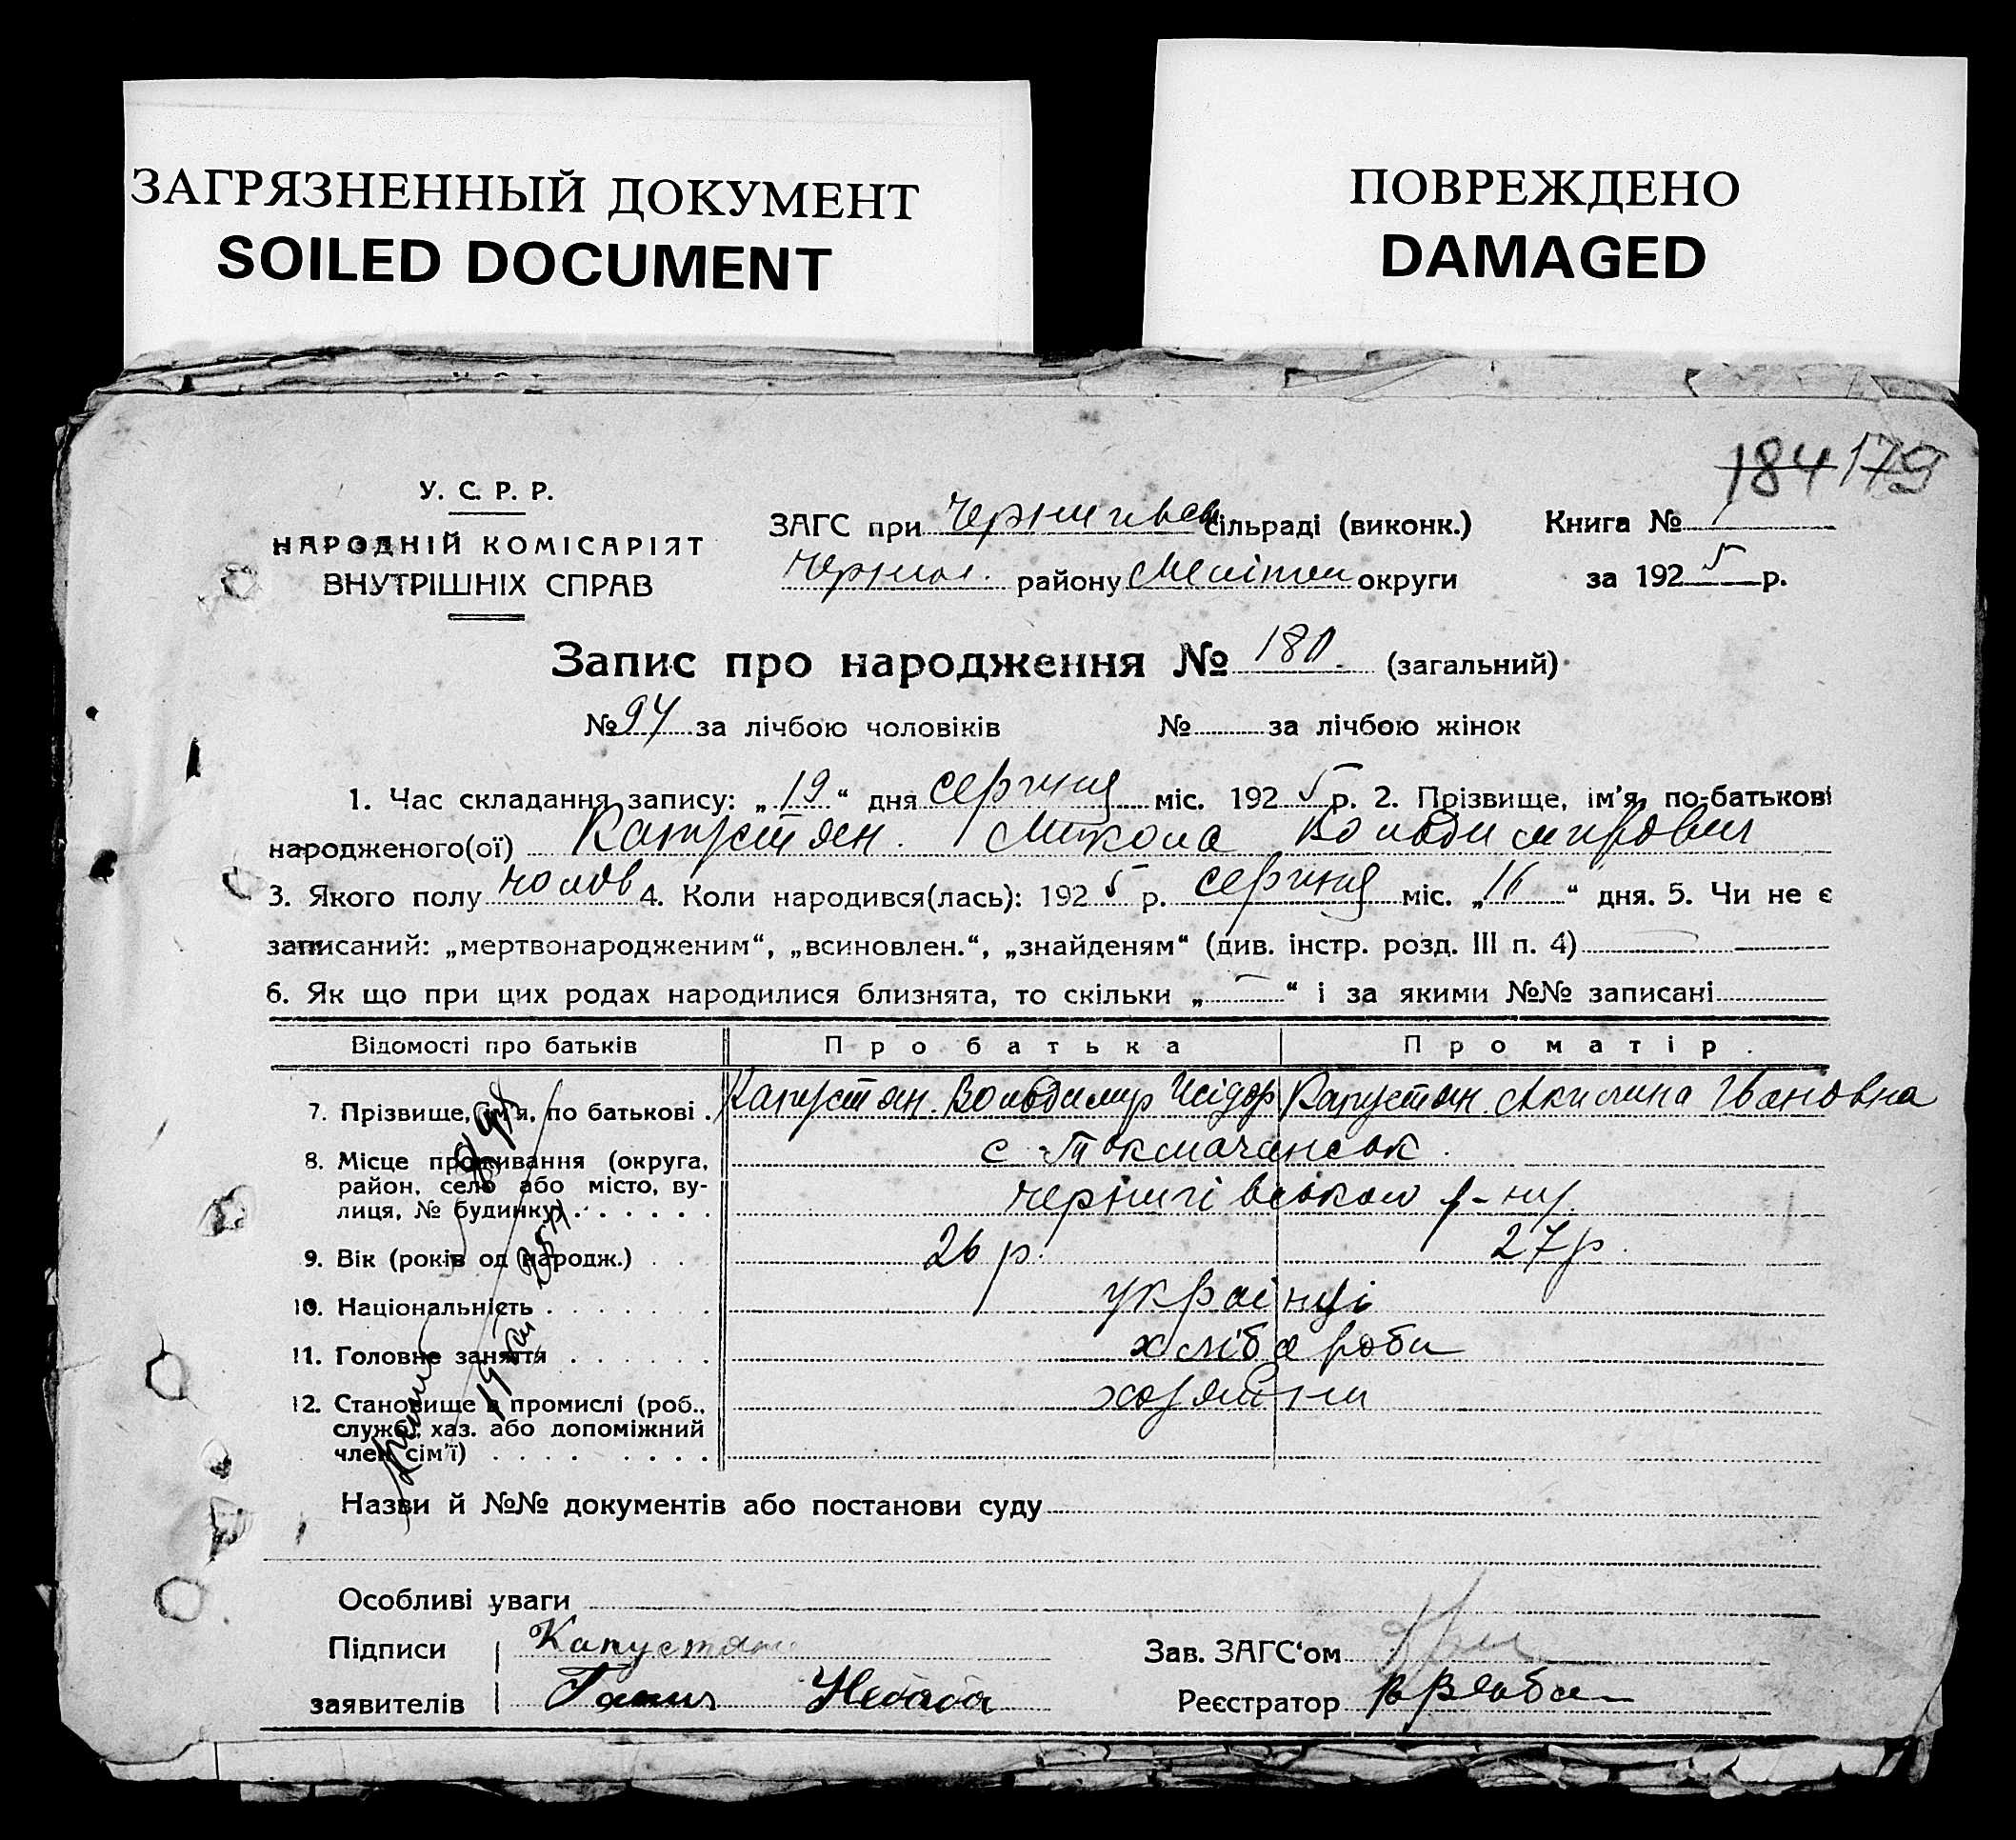 ЗАГРЯЗНЕННЫЙ ДОКУМЕНТ
SOILED DOCUMENT
ПОВРЕЖДЕНО
DAMAGED
184 179
У. С. Р. Р.
НАРОДНІЙ КОМІСАРІЯТ
ВНУТРІШНІХ СПРАВ
ЗАГС при Чернигівськ сільраді (виконк.)
Черниг. району Мелітоп округи
Книга №
за 1925 р.
Запис про народження № 180. (загальний)
№ 94 за лічбою чоловіків № за лічбою жінок
1. Час складання запису: „19“ дня серпня міс. 1925 р. 2. Прізвище, ім'я, по-батькові
народженого(ої) Капустян. Микола Володимирович
3. Якого полу чолов 4. Коли народився(лась): 1925 р. серпня міс. „16“ дня. 5. Чи не є
записаний: „мертвонародженим“, „всиновлен.“, „знайденям“ (див. інстр. розд. III п. 4)
6. Як що при цих родах народилися близнята, то скільки „—“ і за якими №№ записані
Відомості про батьків Про батька Про матір.
7. Прізвище, ім'я, по батькові . Капустян. Володимир Исідор Капустян Акилина Івановна
8. Місце проживання (округа, район, село або місто, вулиця, № будинку) . с. Токмачанськ.
Чернигівськом р-ну.
9. Вік (років од народж.) . . 26 р. 27 р.
10. Національність . українці
11. Головне заняття . хлібороби
12. Становище в промислі (роб., служб., хаз. або допоміжний член сім'ї) . хозяїни
Назви й №№ документів або постанови суду
Особливі уваги
Підписи Капустян
заявителів
Зав. ЗАГС'ом
Реєстратор